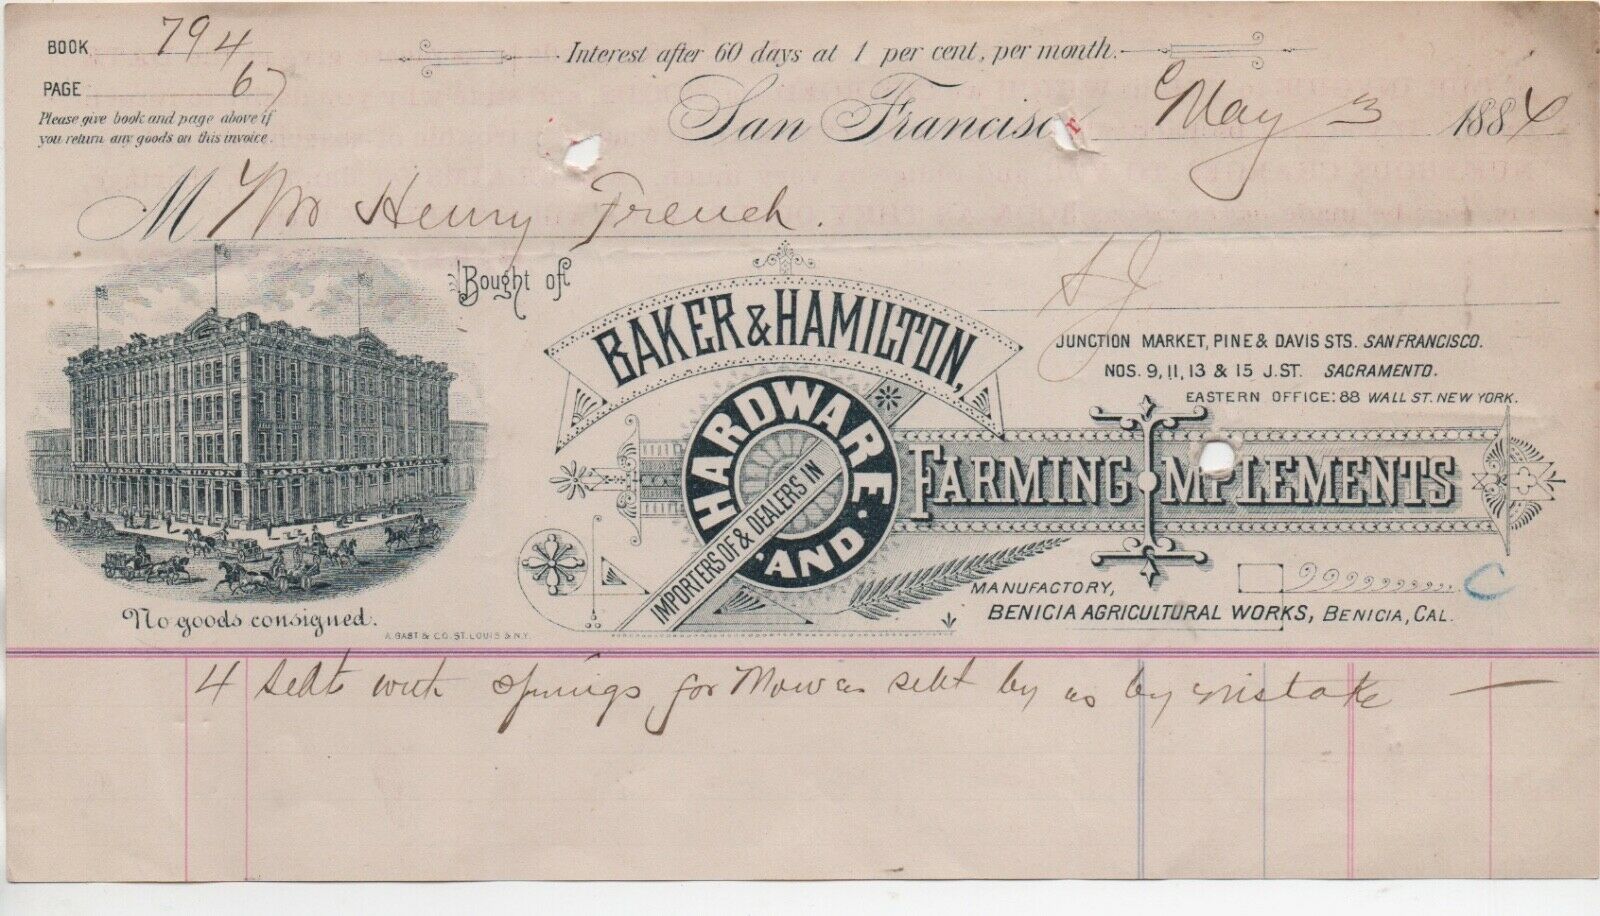 BOOK 794
PAGE 67
Please give book and page above if
you return any goods on this invoice.
Interest after 60 days at 1 per cent, per month.
San Francisco, May 3 1884
M Wm Henry French.
Bought of
S J
BAKER & HAMILTON,
IMPORTERS OF & DEALERS IN
HARDWARE AND
FARMING IMPLEMENTS
JUNCTION MARKET, PINE & DAVIS STS. SAN FRANCISCO.
NOS. 9, 11, 13 & 15 J. ST. SACRAMENTO.
EASTERN OFFICE: 88 WALL ST. NEW YORK.
MANUFACTORY,
BENICIA AGRICULTURAL WORKS, BENICIA, CAL.
C
No goods consigned.
A. GAST & CO. ST. LOUIS & N.Y.
4 with springs for Mower sent by us by mistake —